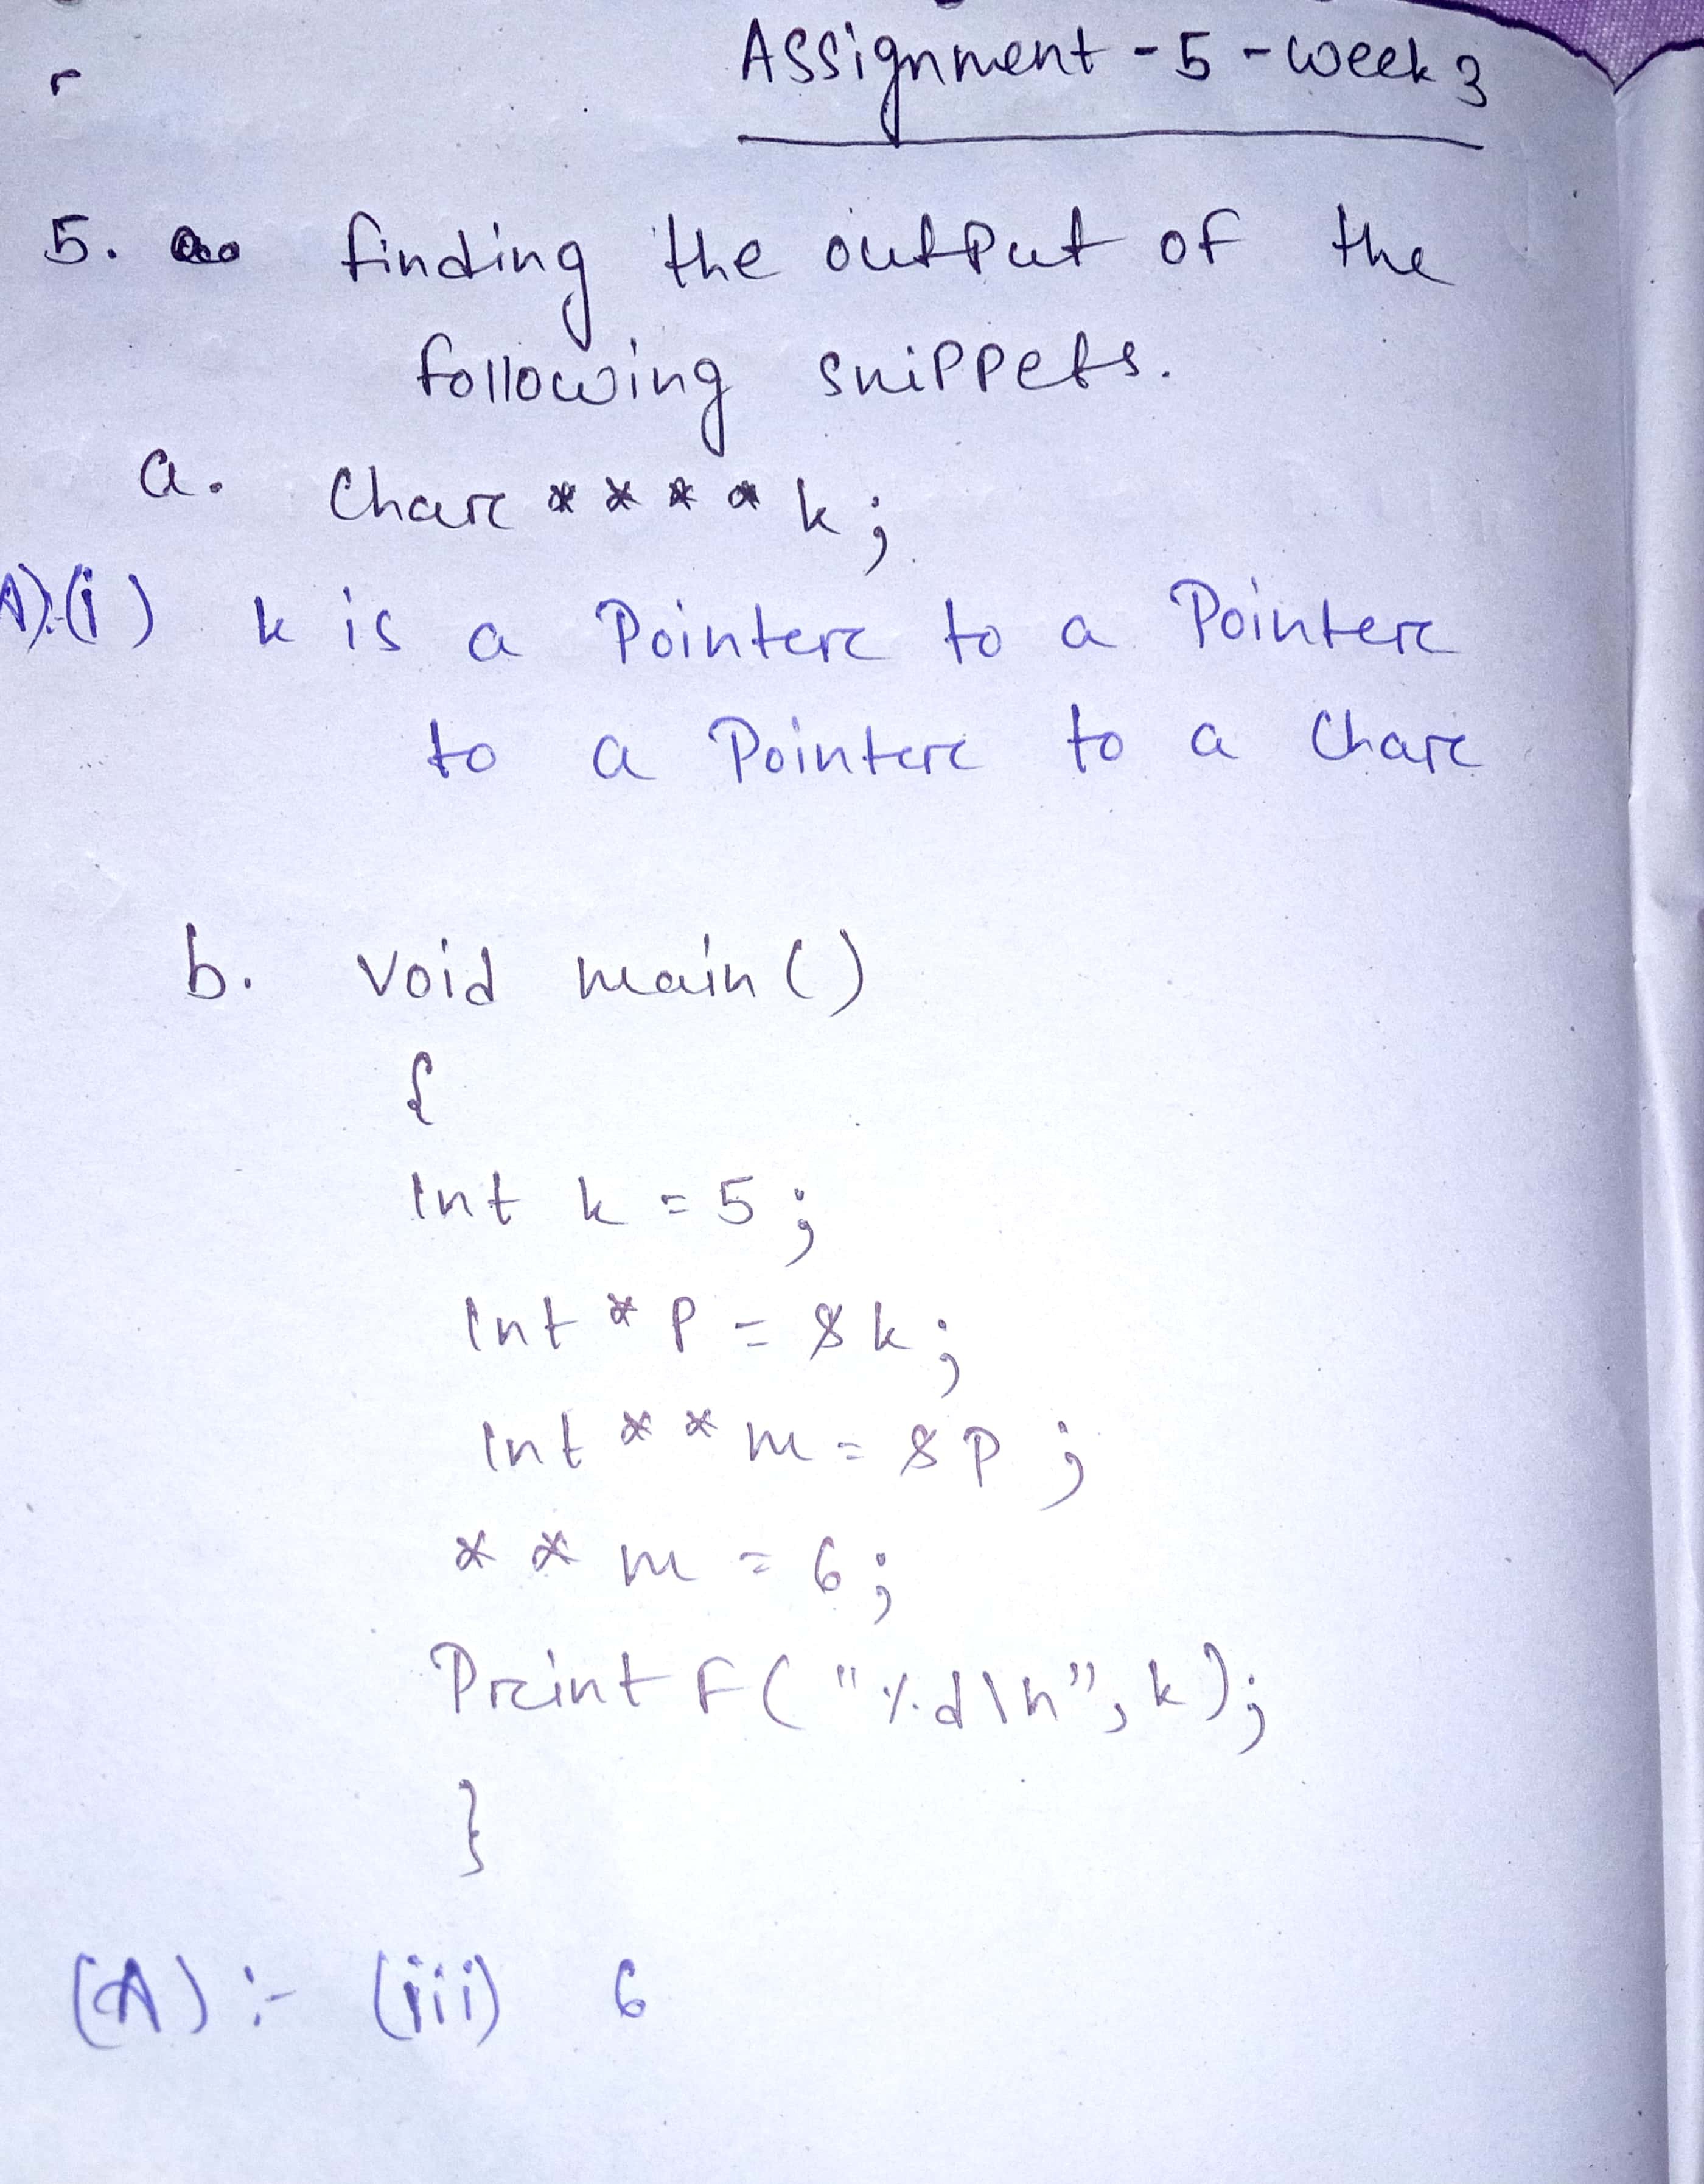 Assignment - 5 - week 3
5. finding the output of the
following snippets.
a. Char * * * * k ;
A) (i) k is a Pointer to a Pointer
to a Pointer to a Char
b. void main ()
{
int k = 5 ;
int * p = &k ;
int * * m = &p ;
* * m = 6 ;
Print f ( "%d\n", k ) ;
}
(A) :- (iii) 6